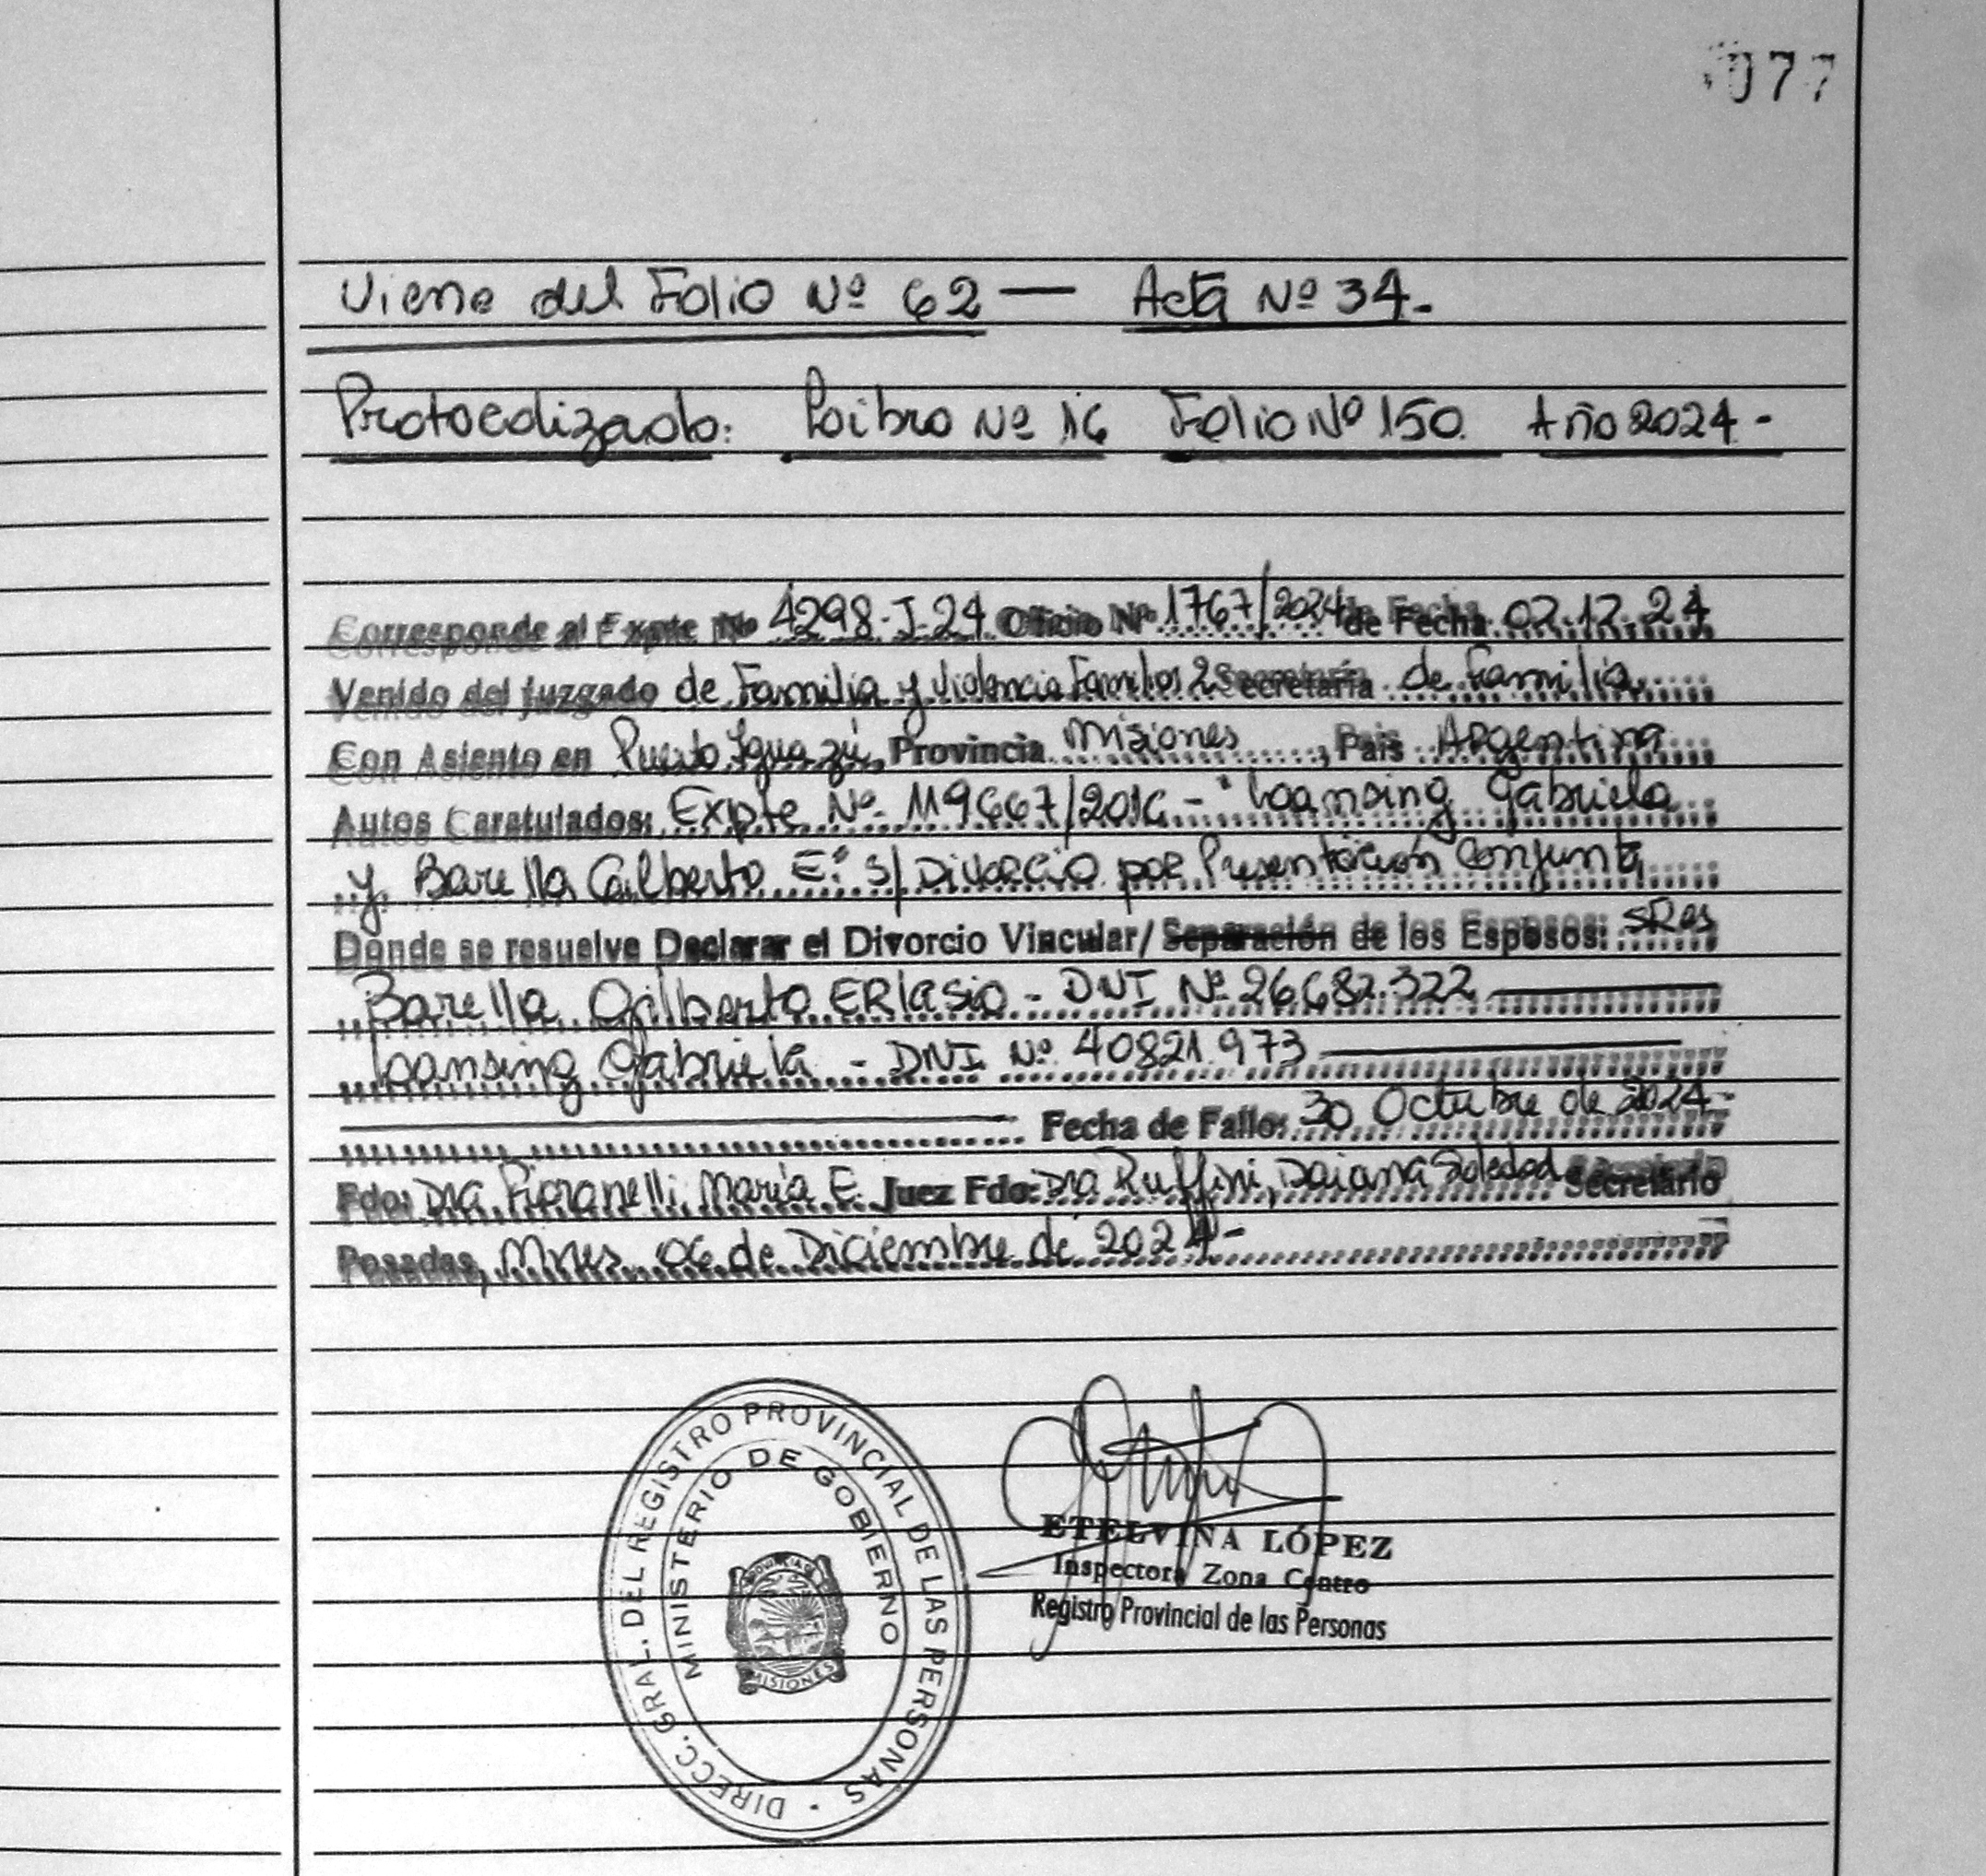 077
Viene del Folio Nº 62 — Acta Nº 34.-
Protocolizado: Libro Nº 16 Folio Nº 150. Año 2024.-
Corresponde al Expte Nº 4298-J-24 Oficio Nº 1767/2024 de Fecha 02.12.24
Venido del Juzgado de Familia y Violencia Familiar 2 Secretaría de Familia
Con Asiento en Puerto Iguazú, Provincia Misiones, País Argentina
Autos Caratulados: Expte Nº 119667/2016 - "Loansing Gabriela
y Barella Gilberto E." s/ Divorcio por Presentación Conjunta
Donde se resuelve Declarar el Divorcio Vincular/ Separación de los Esposos: SRes
Barella Gilberto ERlasio - DNI Nº 26.682.322
Loansing Gabriela - DNI Nº 40821.973
Fecha de Fallo: 30 Octubre de 2024-
Fdo: Dra Fioranelli, María E. Juez Fdo: Dra Ruffini, Daiana Soledad Secretario
Posadas, Mnes, 06 de Diciembre de 2024-
DIRECC. GRAL. DEL REGISTRO PROVINCIAL DE LAS PERSONAS
MINISTERIO DE GOBIERNO
MISIONES
ETELVINA LÓPEZ
Inspectora Zona Centro
Registro Provincial de las Personas